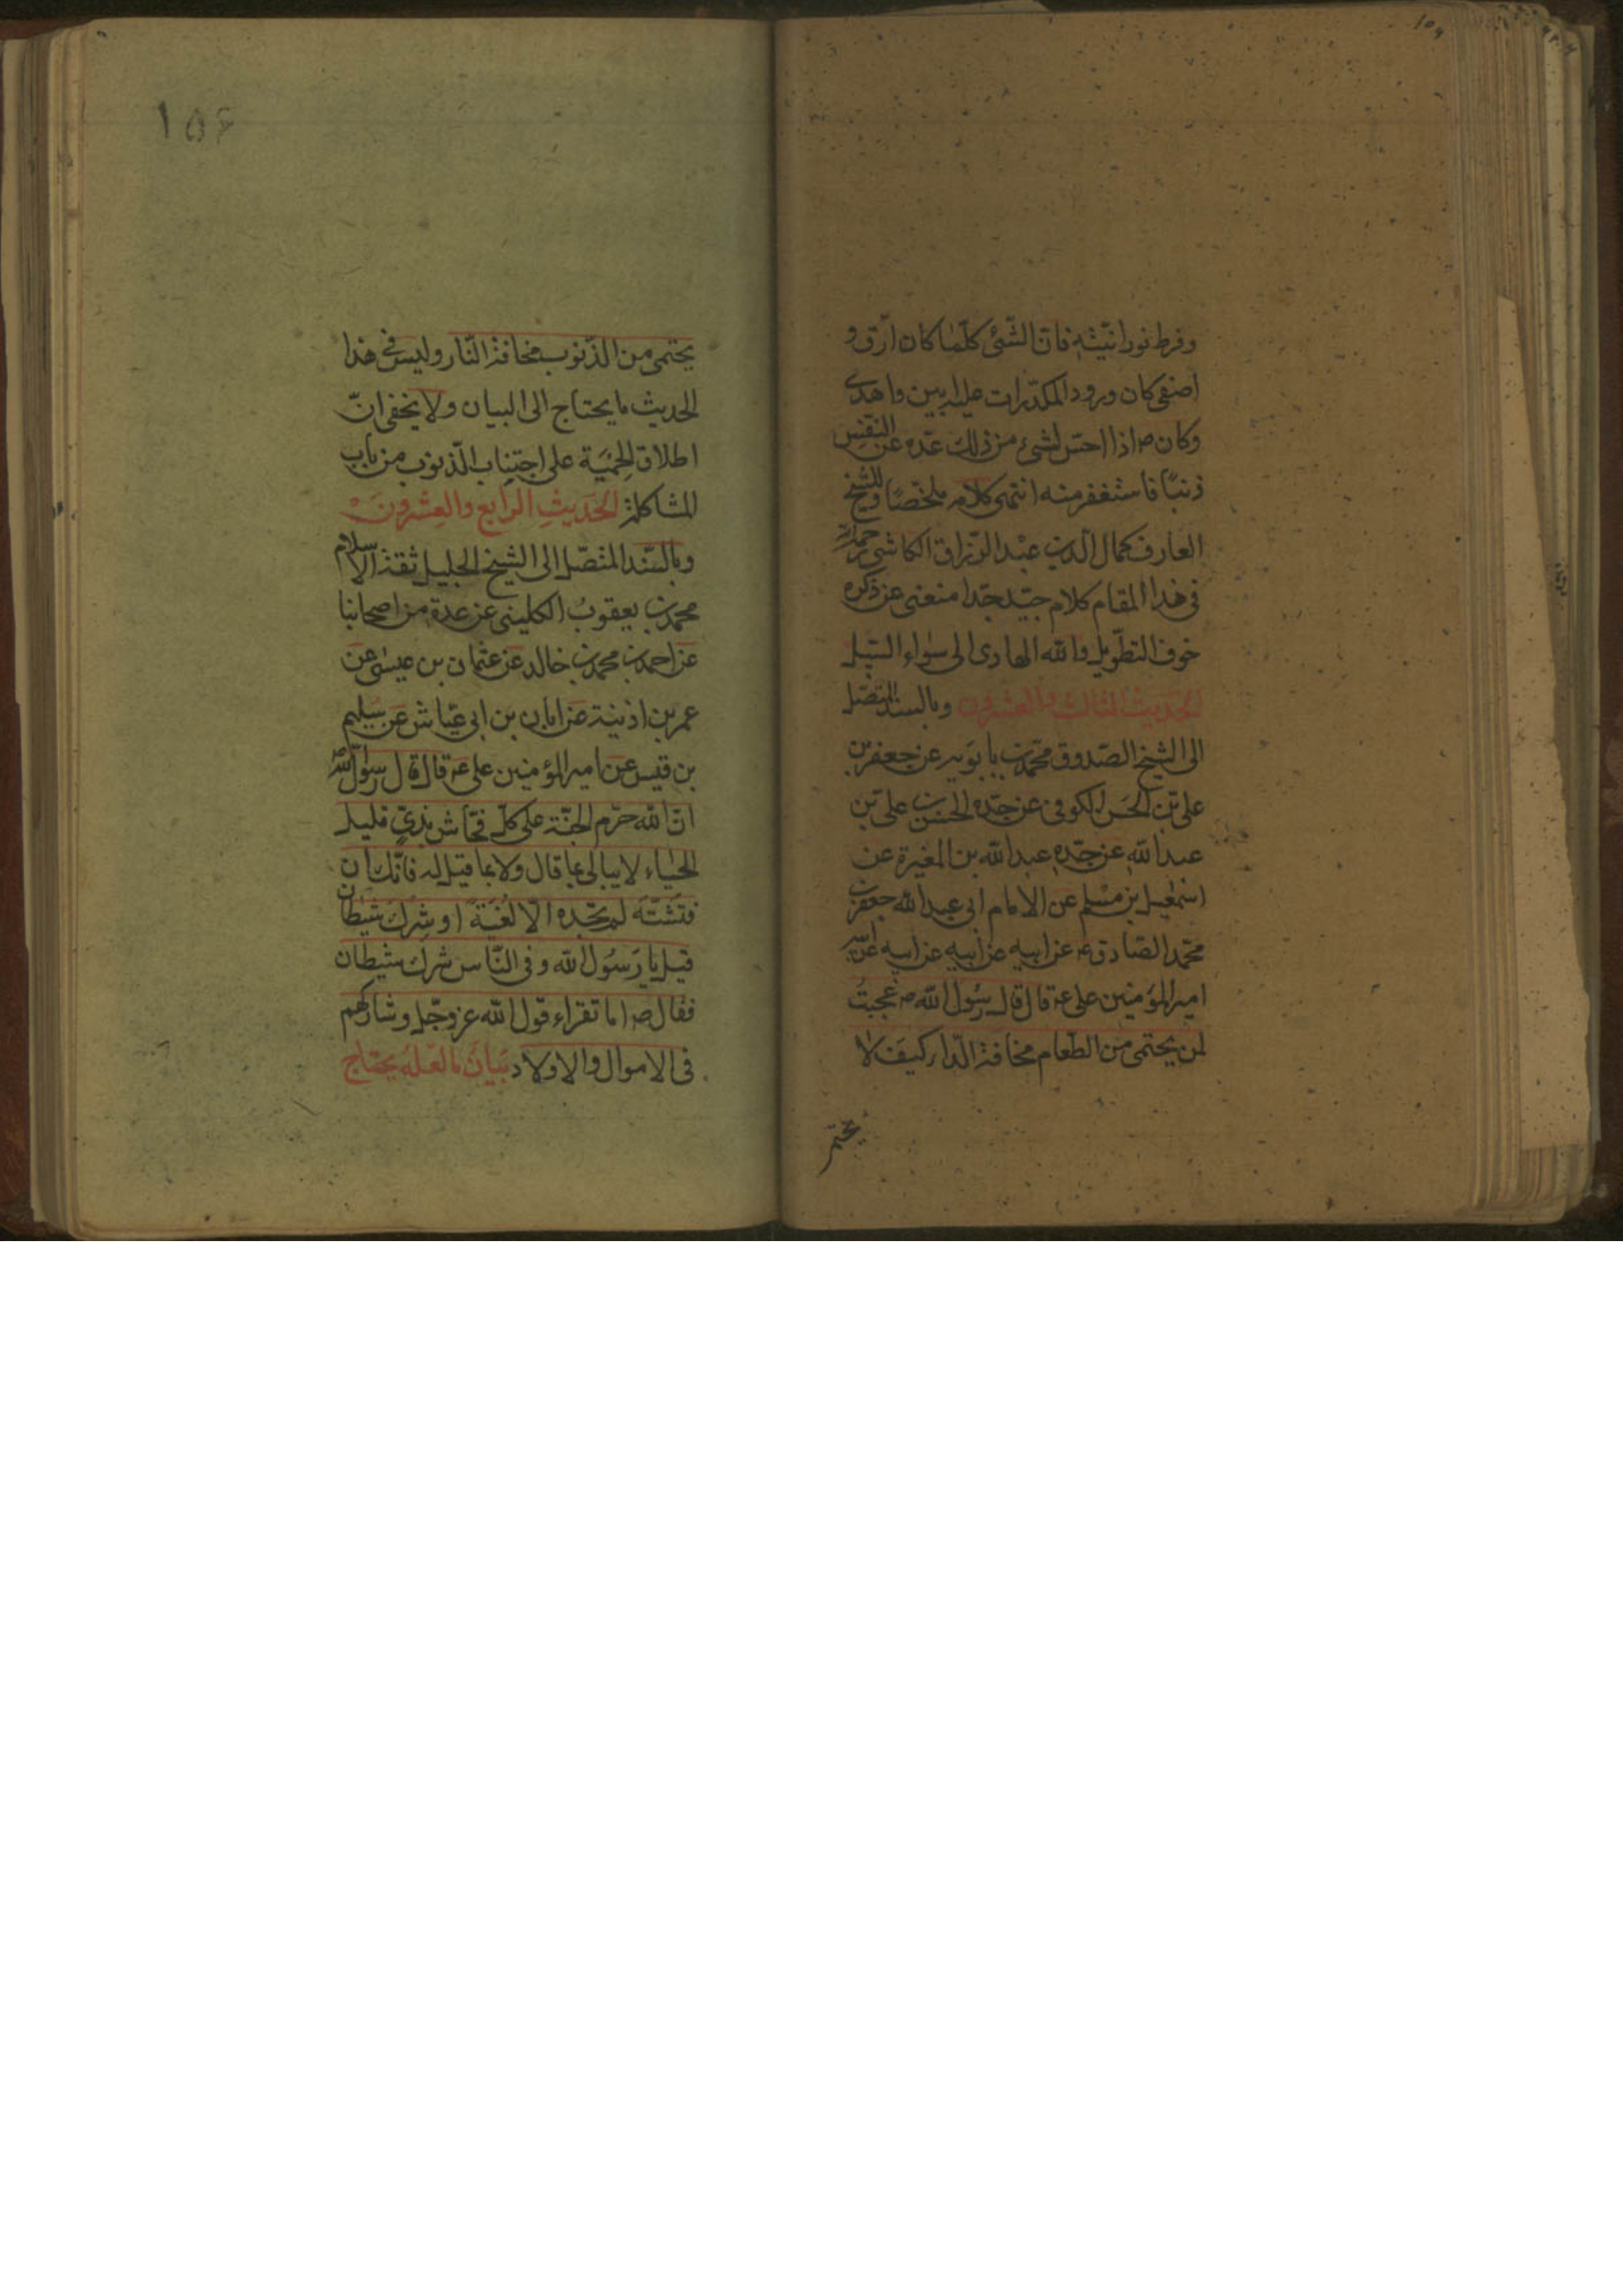 وفرط نورانيّته فانّ الشّئ كلّما كان ارّق و
اصفى كان ورود المكدّرات عليه ابين واهدى
وكان ص اذا احسّ لشئ من ذلك عدّه على النّفس
ذنبًا فاستغفر منه انتهى كلامه ملخّصًا وللشّيخ
العارف كمال الدّين عبْد الرّزاق الكاشى رحمه الله
فى هذا المقام كلام جيّد جدّا منعنى عن ذكره
خوف التطّويل والله الهادى الى سواء السّبيل
الحَديث الثالث والعشرون وبالسند المتصّل
الى الشيخ الصّدوق محمّد بن بابويه عن جعفر بن
على بن الحَسن الكوفى عن جدّه الحسن بن على بن
عبدالله عن جدّه عبدالله بن المغيرة عن
اسمعيل بن مسْلم عن الامام ابى عبدالله جعفر بن
محمّد الصّادق ع عن ابيه عن ابيه عن ابيه عن
امير المؤمنين على ع قال قال رسُول الله ص عجبتُ
لمن يحتمى من الطّعام مخافة الدّاء كيفَ لا
يحتمى
١٥۶
يحتمى من الذّنوب مخافة النّار وليس فى هذا
الحديث ما يحتاج الى البيان ولا يخفى انّ
اطلاق الحِميَة على اجتناب الذّنوب من باب
المشاكلة الحَديثِ الرابع والعِشرونَ
وبالسّند المتصّل الى الشيخ الجليل ثقة الاسلام
محمّد بن يعقوبُ الكلينى عن عدة من اصحابنا
عن احمد بن محمد بن خالد عن عثمان بن عيسى عن
عمر بن اذينة عن ابان بن ابى عيّاش عن سُليم
بن قيس عن امير المؤمنين على ع قال قال رسول الله
انّ الله حرّم الجنّة على كلّ فحّاش بذىّ قليل
الحيَاء لا يبالى بما قال ولا بما قيل له فانّك ان
فتشته لم تجده الّا لغيَةً او شِرك شيطان
قيل يا رَسُول الله وفى النّاس شرك شيطان
فقال ص اما تقراء قول الله عزوجّل وشاركهم
فى الاموال والاولاد بيَانُ ما لعَلّهُ يحتاج